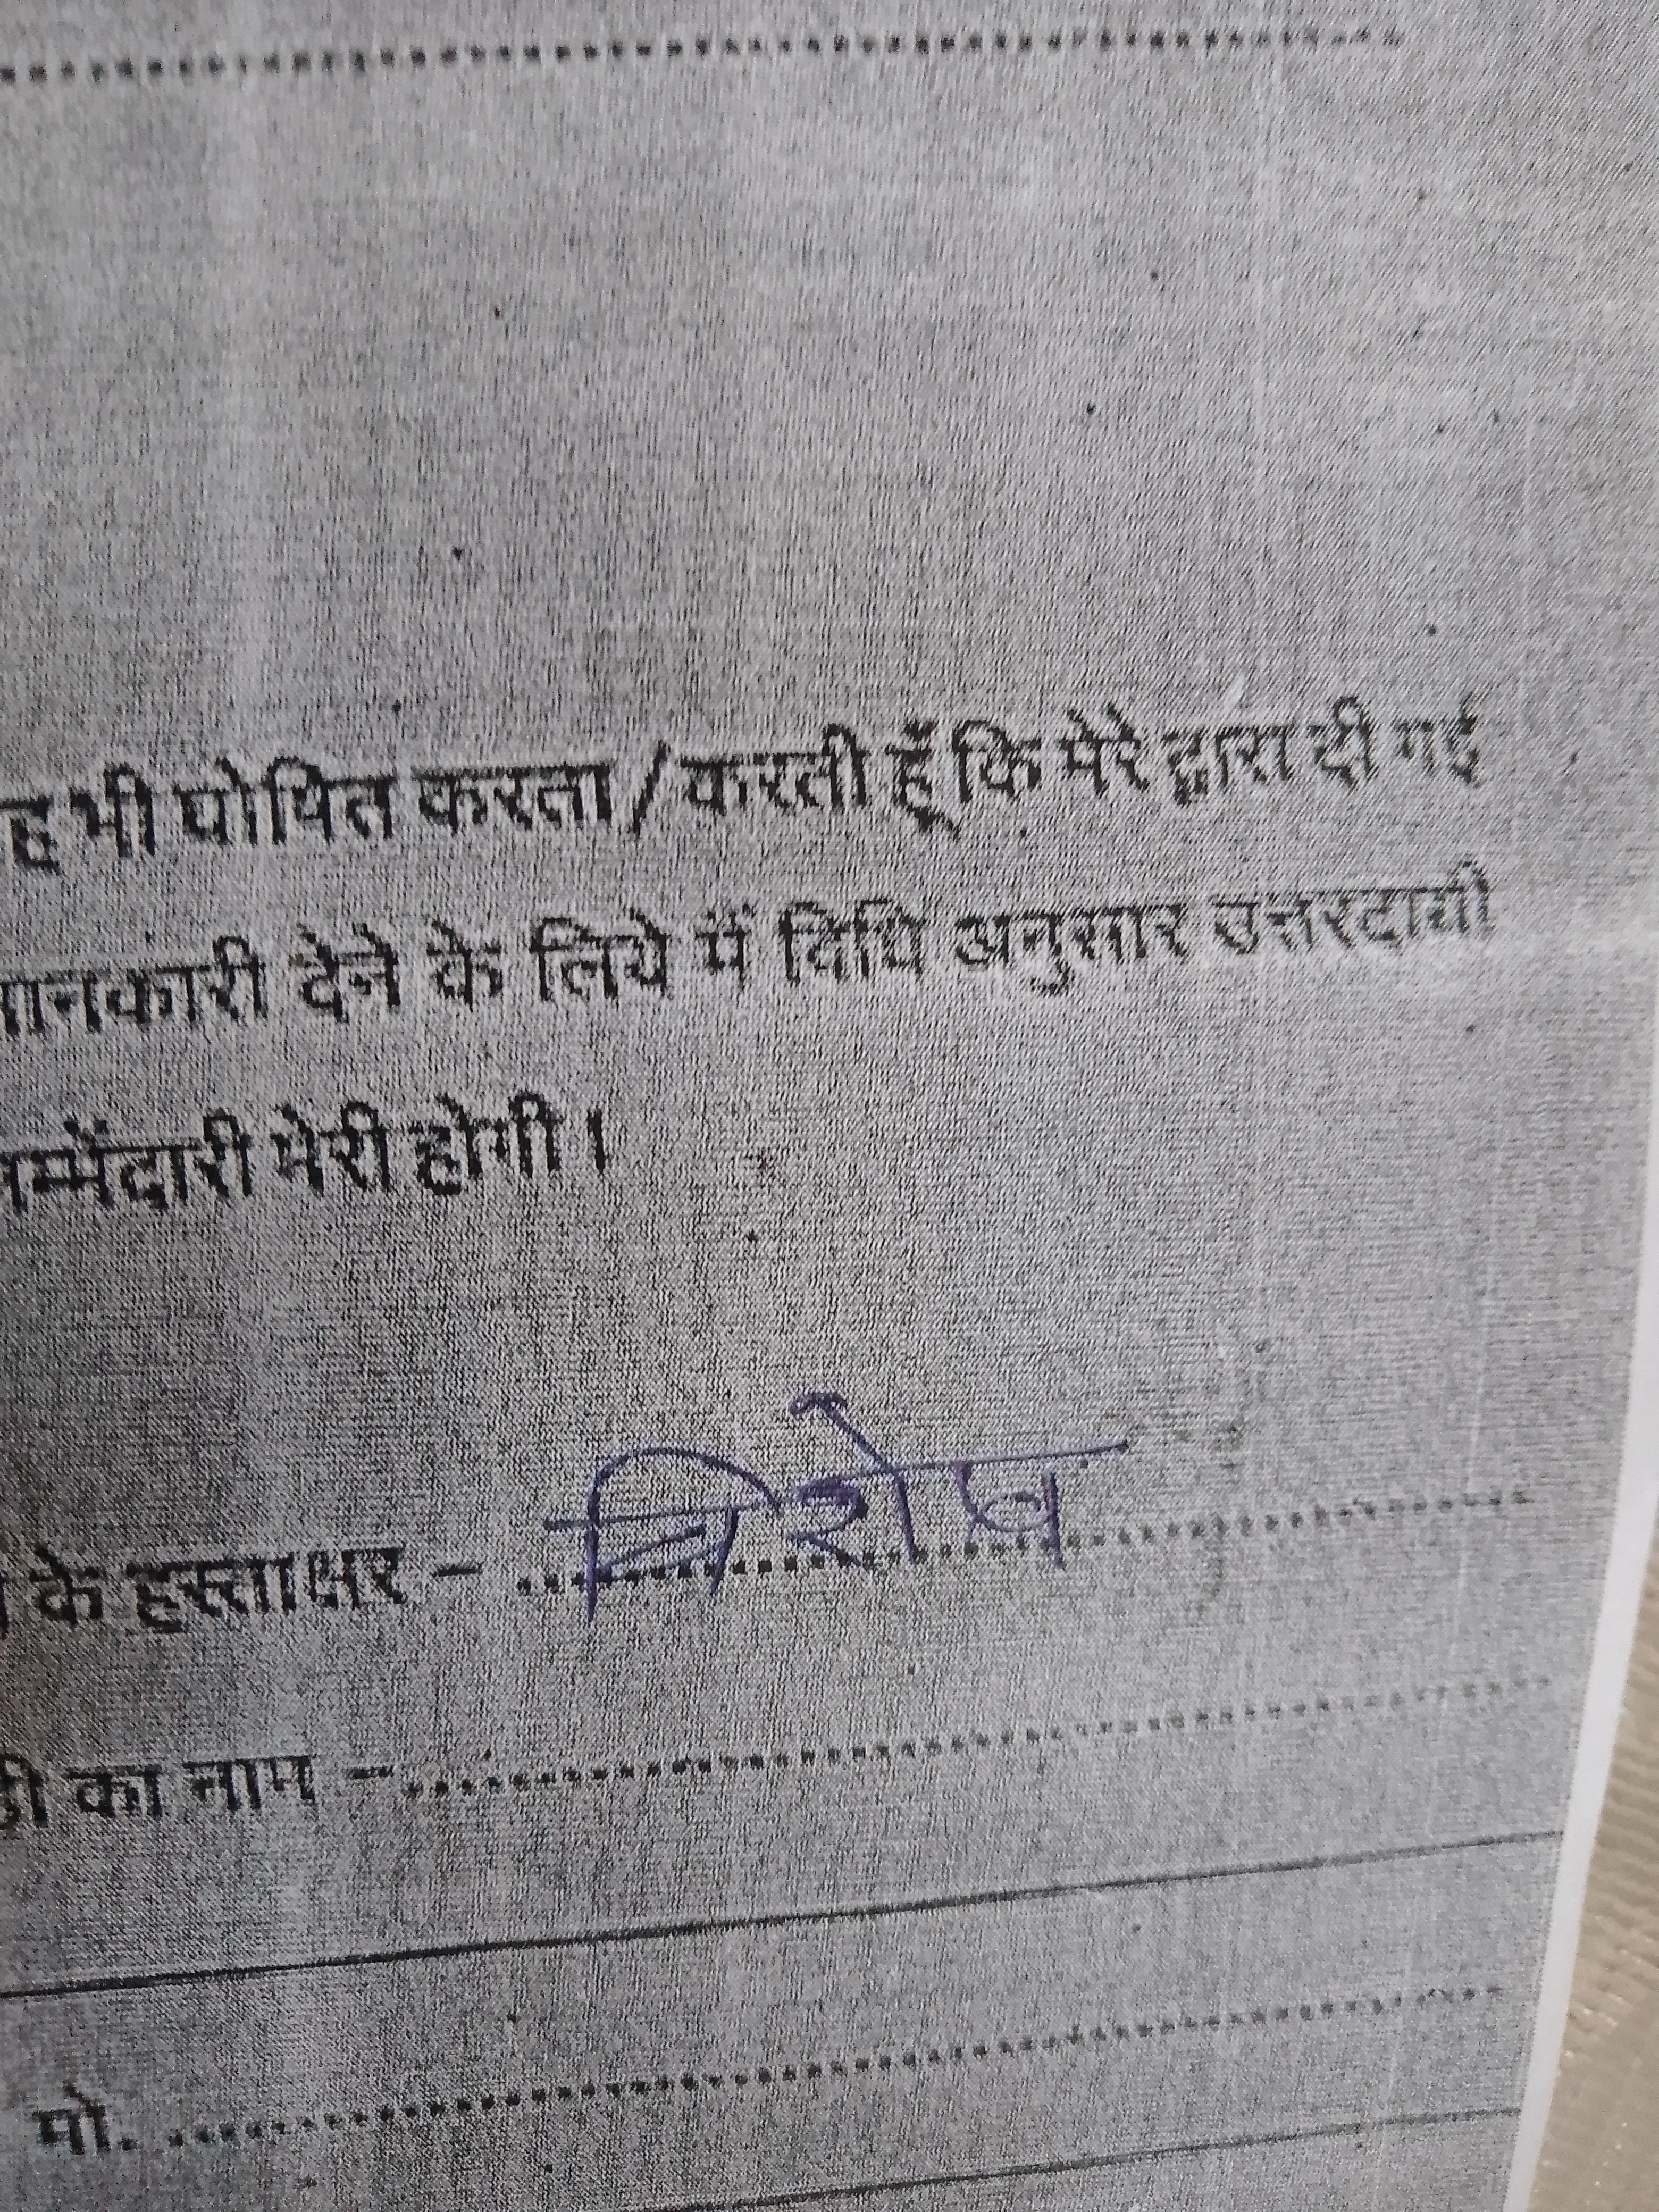 ह भी घोषित करता / करती हूँ कि मेरे द्वारा दी गई
ानकारी देने के लिये में विधि अनुसार उत्तरदायी
म्मेंदारी मेरी होगी।
के हस्ताक्षर - ..............................
ी का नाम - ..............................
मो. ..............................